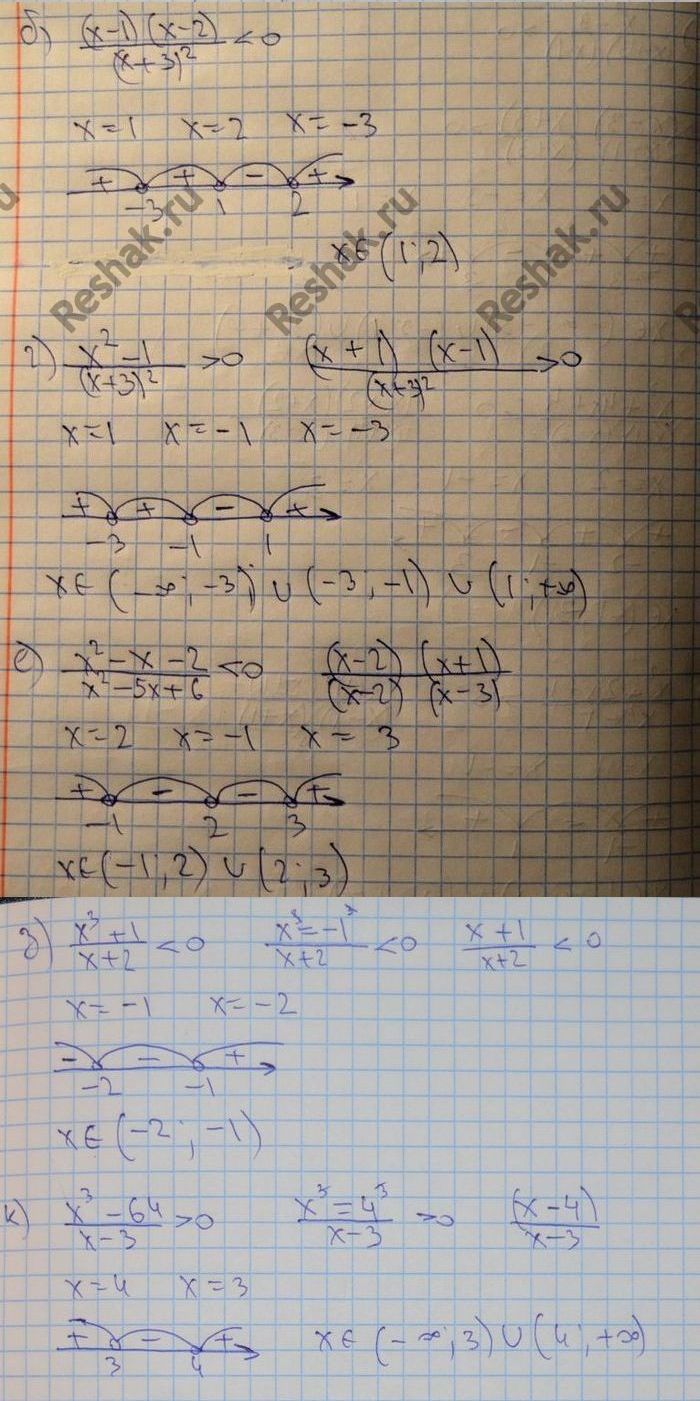 б) (x-1) (x-2) / (x+3)² < 0
x=1 x=2 x=-3
+ + - +
-3 1 2
x∈(1;2)
Reshak.ru Reshak.ru
г) x²-1 / (x+3)² >0 (x+1) (x-1) / (x+3)² >0
x=1 x=-1 x=-3
+ + - +
-3 -1 1
x∈(-∞;-3)∪(-3;-1)∪(1;+∞)
е) x²-x-2 / x²-5x+6 <0 (x-2) (x+1) / (x-2) (x-3)
x=2 x=-1 x=3
+ - - +
-1 2 3
x∈(-1;2)∪(2;3)
з) x³+1 / x+2 <0 x³=-1³ / x+2 <0 x+1 / x+2 < 0
x=-1 x=-2
- - +
-2 -1
x∈(-2;-1)
к) x³-64 / x-3 >0 x³=4³ / x-3 >0 (x-4) / x-3
x=4 x=3
+ - +
3 4
x∈(-∞;3)∪(4;+∞)